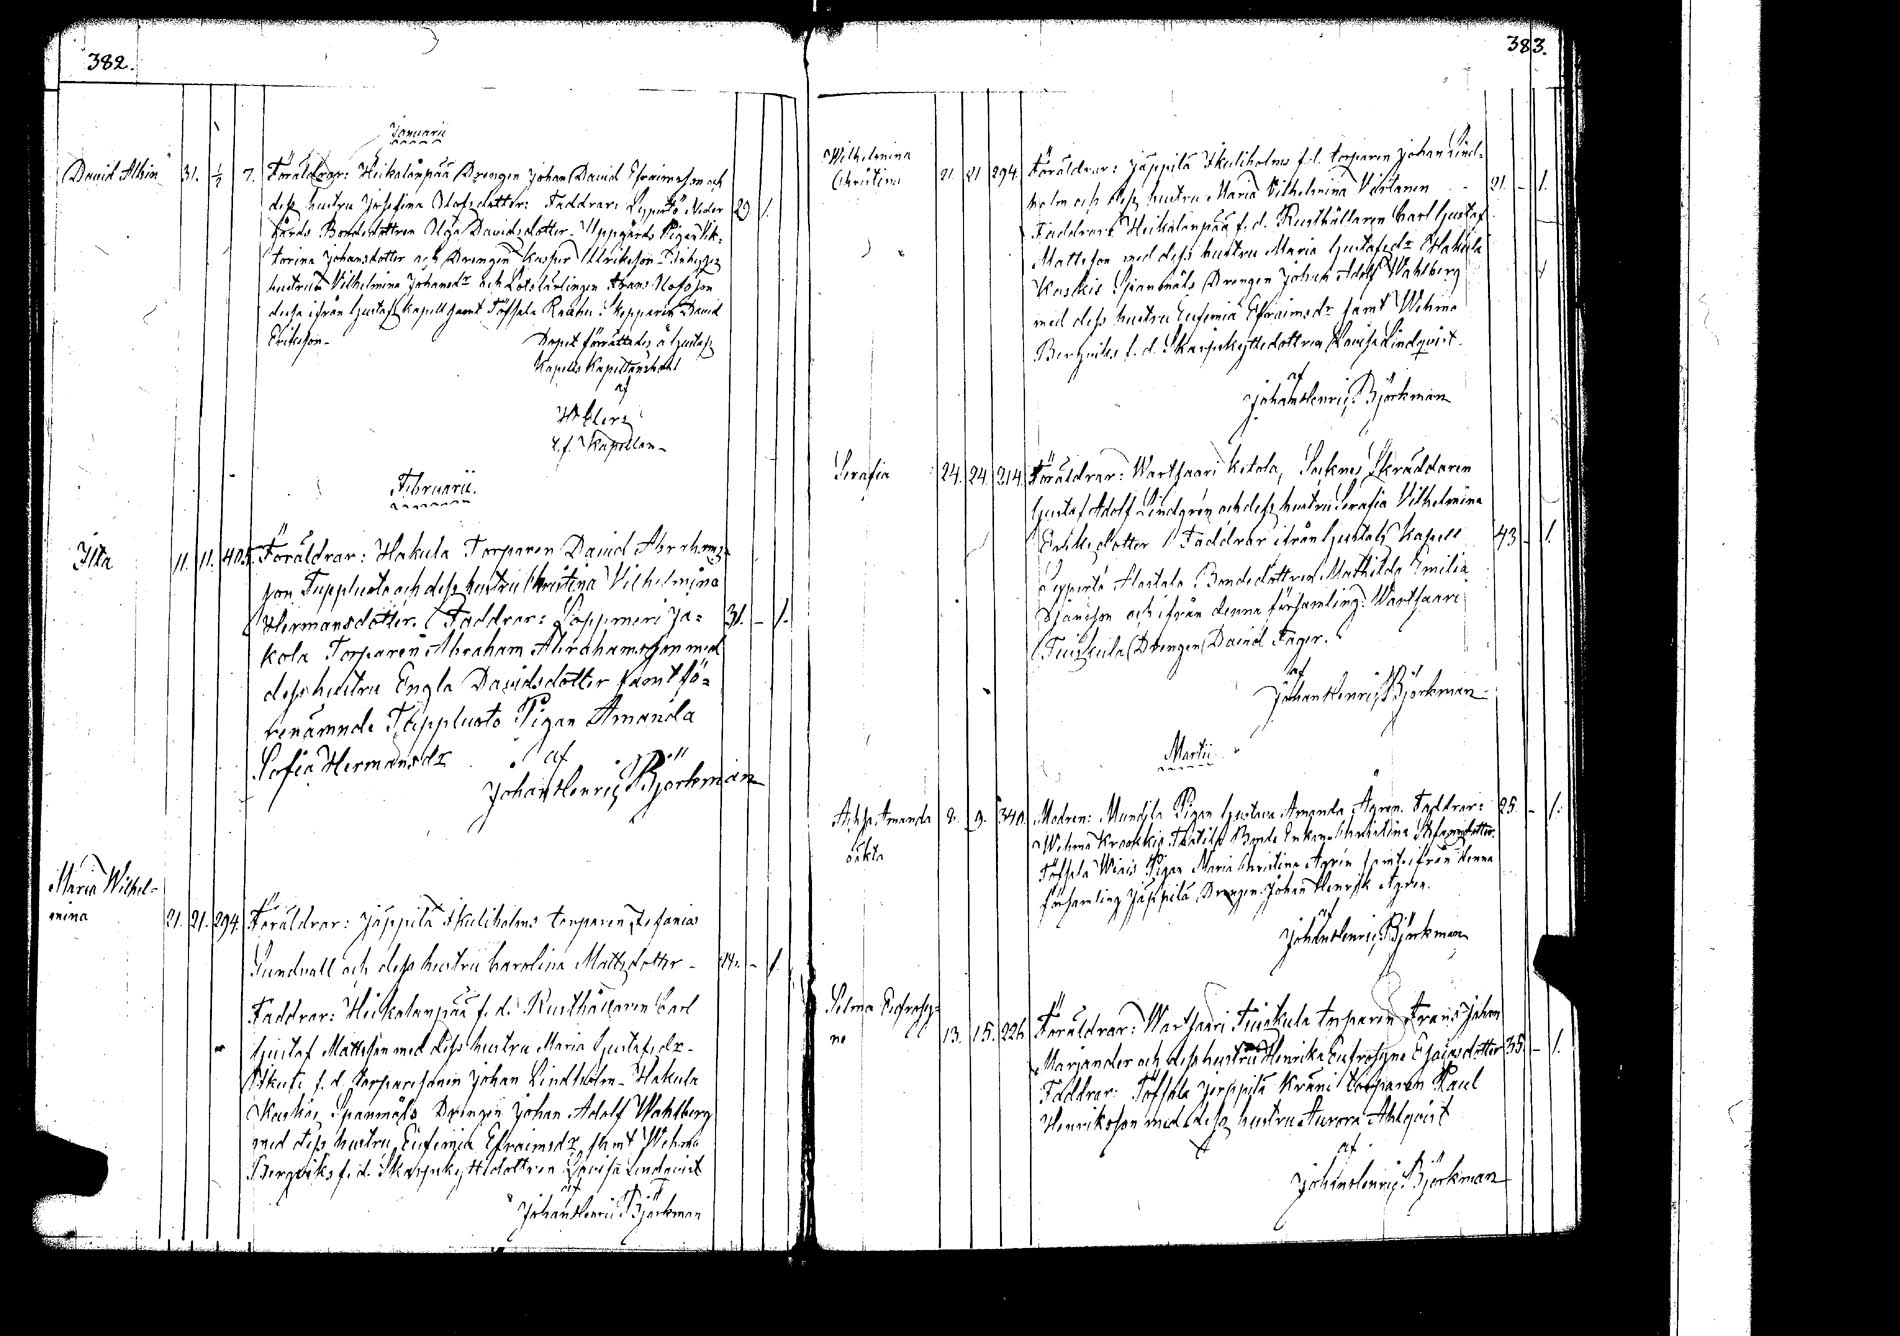 382.
Januarii
David Albin 31. ½ 7. Föräldrar: Heikalanpää Drengen Johan David Efraimsson och
dess hustru Josefina Olofsdotter: Faddrar: Lypertö Neder 29 1.
gårds Bondedottren Olga Davidsdotter - Uppgårds Pigan Vik-
torina Johansdotter och Drengen Kasper Ulriksson
hustrun Vilhelmina Johansdr och Lotslärlingen Frans Olofsson
dessa ifrån Gustafs Kapell samt Töfsala Skepparen David
Eriksson - Dopet förrättades å Gustafs
Kapells Kapellansbohl
af
v.f. Kapellan -
Februarii.
Ilta 11. 11. 405. Föräldrar: Hakula Torparen David Abrahams-
son Tuppluoto och dess hustru Christina Vilhelmina
Hermansdotter. Faddrar: Ja- 31. - 1.
kola Torparen Abraham Abrahamsson med
dess hustru Engla Davidsdotter samt fö-
benämnde Tuppluoto Pigan Amanda
Sofia Hermansdr
af
Johan Henric Björkman
Maria Wilhel-
mina 21. 21. 294. Föräldrar: Jäppilä Skuliholms torparen Zefanias
Sundvall och dess hustru Carolina Mattsdotter - - 1.
Faddrar: Heikalanpää f. d. Rusthållaren Carl
Gustaf Mattsson med dess hustru Maria Gustafsdr -
f. d. torparesonen Johan Lindholm - Hakula
Kaskis Spanmåls Drengen Johan Adolf Wahlberg
med dess hustru Eufemia Efraimsdr samt Wehmo
Bergviks f. d. Skarpskyttedottren Lovisa Lindqvist
af
Johan Henric Björkman
383.
Wilhelmina
Christina 21. 21 294. Föräldrar: Jäppilä Skuliholms f. d. torparen Johan Lind-
holm och dess hustru Maria Vilhelmina Virtanen - - 21. - 1.
Faddrar: Heikalanpää f. d. Rusthållaren Carl Gustaf
Mattsson med dess hustru Maria Gustafsdr Hakula
Kaskis Spanmåls Drengen Johan Adolf Wahlberg
med dess hustru Eufemia Efraimsdr samt Wehmo
Bergviks f. d. Skarpskyttedottren Lovisa Lindqvist -
af
Johan Henric Björkman
Serafia 24. 24. 214. Föräldrar: Wartsaari Ketola, Sockne Skräddaren
Gustaf Adolf Lindgrén och dess hustru Serafia Vilhelmina
Eriksdotter Faddrar ifrån Gustafs Kapell 43 - 1.
Lypertö Alastalo Bondedottren Mathilda Emilia
och ifrån denna församling: Wartsaari
Tuiskula Drengen David Fager.
af
Johan Henric Björkman -
Martii
Amanda 8. 9. 340. Modren: Pigan Gustava Amanda Ågren. Faddrar: 25. - 1.
oäkta Wehmo Bonde Enkan Christina
Töfsala Pigan Maria Christina Ågrén samt ifrån denna
församling Jäppilä Drengen Johan Henrik Ågren.
af
Johan Henric Björkman
Selma Eufrosy-
ne 13. 15. 226. Föräldrar: Wartsaari Tuiskula torparen Frans Johan
Marjander och dess hustru Henrika Eufrosyne Esaiasdotter 35. - 1.
Faddrar: Töfsala Jerppilä torparen Paul
Henriksson med dess hustru Aurora Ahlqvist
af
Johan Henric Björkman